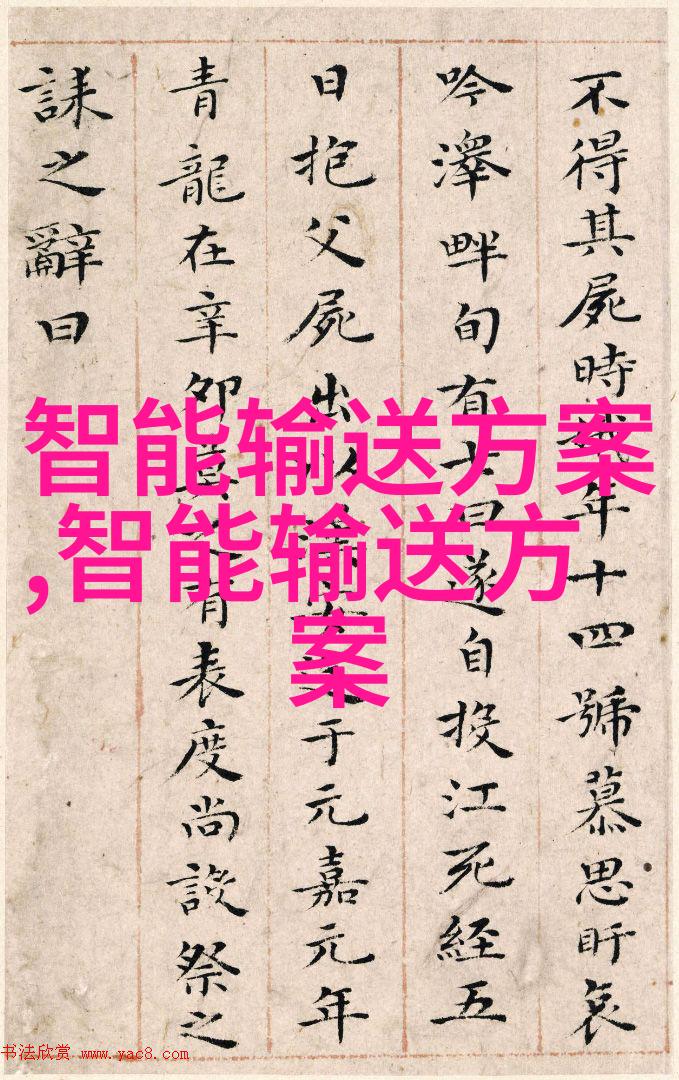 不得其屍時娥年十四號慕思盱哀
吟澤畔旬有七日遂自投江死經五
日抱父屍出以于元嘉元年
青龍在辛卯莫之有表度尚設祭之
誄之辭曰
智能输送方案
,智能输送方
案
书法欣赏 www.yac8.com